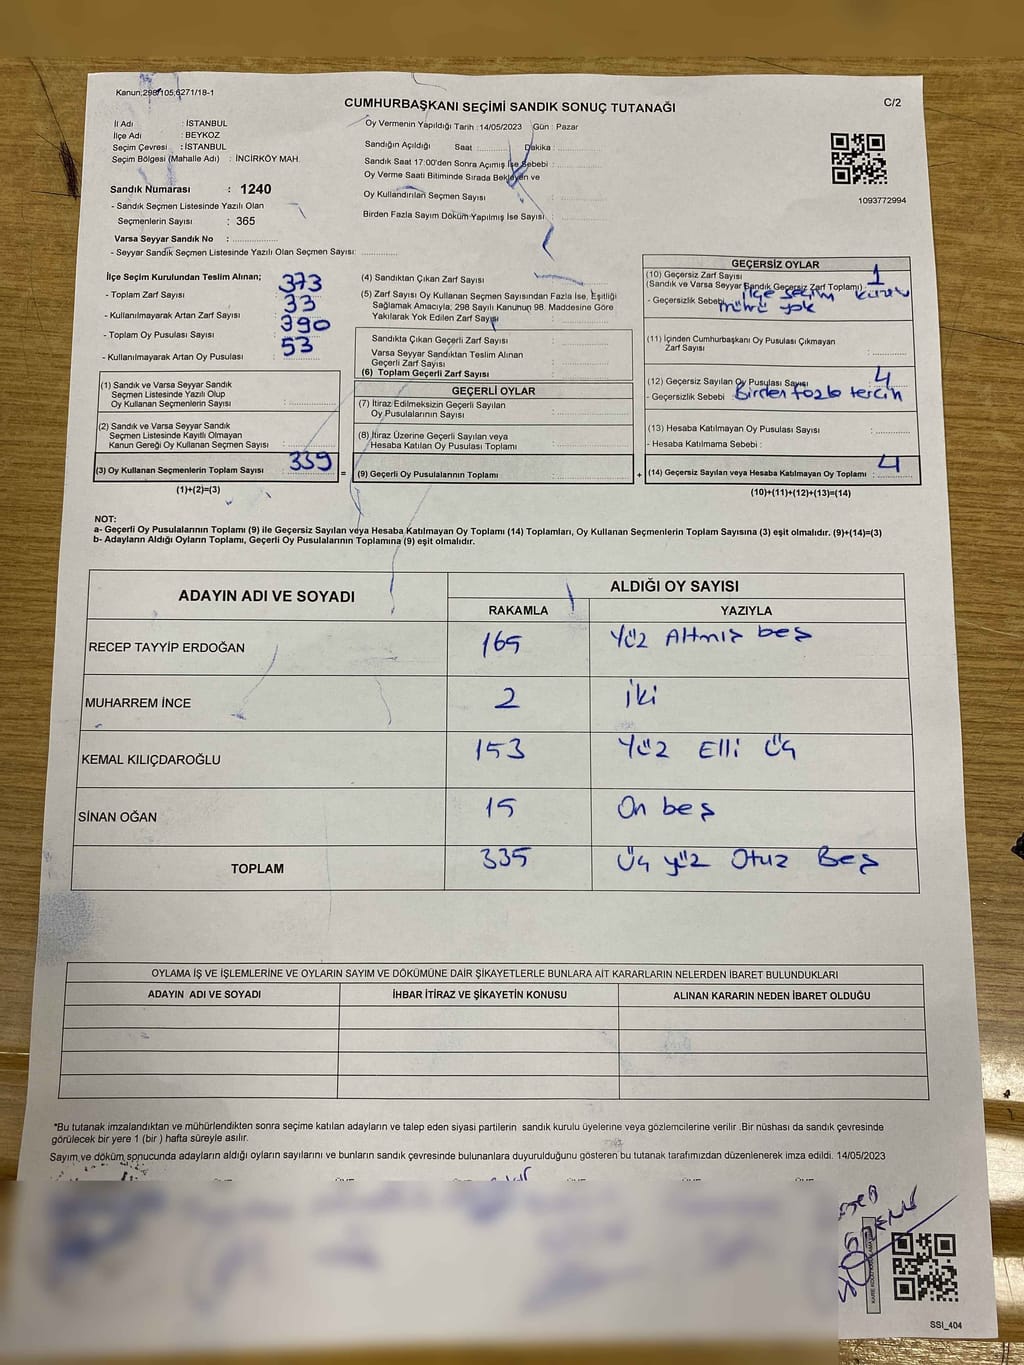 Kanun;298,105,6271/18-1
CUMHURBAŞKANI SEÇİMİ SANDIK SONUÇ TUTANAĞI
C/2
İl Adı : İSTANBUL
İlçe Adı : BEYKOZ
Seçim Çevresi : İSTANBUL
Seçim Bölgesi (Mahalle Adı) : İNCİRKÖY MAH.
Sandık Numarası : 1240
- Sandık Seçmen Listesinde Yazılı Olan
Seçmenlerin Sayısı : 365
Varsa Seyyar Sandık No : ..............
- Seyyar Sandık Seçmen Listesinde Yazılı Olan Seçmen Sayısı: ..............
Oy Vermenin Yapıldığı Tarih : 14/05/2023 Gün : Pazar
Sandığın Açıldığı Saat : .......... Dakika : ..........
Sandık Saat 17:00'den Sonra Açımış İse Sebebi : ..........
Oy Verme Saati Bitiminde Sırada Bekleyen ve
Oy Kullandırılan Seçmen Sayısı : ..........
Birden Fazla Sayım Döküm Yapılmış İse Sayısı : ..........
1093772994
İlçe Seçim Kurulundan Teslim Alınan;
- Toplam Zarf Sayısı : 373
- Kullanılmayarak Artan Zarf Sayısı : 33
- Toplam Oy Pusulası Sayısı : 390
- Kullanılmayarak Artan Oy Pusulası : 53
(1) Sandık ve Varsa Seyyar Sandık
Seçmen Listesinde Yazılı Olup
Oy Kullanan Seçmenlerin Sayısı : ..........
(2) Sandık ve Varsa Seyyar Sandık
Seçmen Listesinde Kayıtlı Olmayan
Kanun Gereği Oy Kullanan Seçmen Sayısı : ..........
(3) Oy Kullanan Seçmenlerin Toplam Sayısı : 339 =
(1)+(2)=(3)
(4) Sandıktan Çıkan Zarf Sayısı
(5) Zarf Sayısı Oy Kullanan Seçmen Sayısından Fazla İse, Eşitliği
Sağlamak Amacıyla; 298 Sayılı Kanunun 98. Maddesine Göre
Yakılarak Yok Edilen Zarf Sayısı : ..........
Sandıkta Çıkan Geçerli Zarf Sayısı : ..........
Varsa Seyyar Sandıktan Teslim Alınan
Geçerli Zarf Sayısı : ..........
(6) Toplam Geçerli Zarf Sayısı : ..........
GEÇERLİ OYLAR
(7) İtiraz Edilmeksizin Geçerli Sayılan
Oy Pusulalarının Sayısı : ..........
(8) İtiraz Üzerine Geçerli Sayılan veya
Hesaba Katılan Oy Pusulası Toplamı : ..........
(9) Geçerli Oy Pusulalarının Toplamı : .......... +
GEÇERSİZ OYLAR
(10) Geçersiz Zarf Sayısı
(Sandık ve Varsa Seyyar Sandık Geçersiz Zarf Toplamı) : 1
- Geçersizlik Sebebi : ilçe seçim kurulu
mührü yok
(11) İçinden Cumhurbaşkanı Oy Pusulası Çıkmayan
Zarf Sayısı : ..........
(12) Geçersiz Sayılan Oy Pusulası Sayısı : 4
- Geçersizlik Sebebi : Birden fazla tercih
(13) Hesaba Katılmayan Oy Pusulası Sayısı : ..........
- Hesaba Katılmama Sebebi :
(14) Geçersiz Sayılan veya Hesaba Katılmayan Oy Toplamı : 4
(10)+(11)+(12)+(13)=(14)
NOT:
a- Geçerli Oy Pusulalarının Toplamı (9) ile Geçersiz Sayılan veya Hesaba Katılmayan Oy Toplamı (14) Toplamları, Oy Kullanan Seçmenlerin Toplam Sayısına (3) eşit olmalıdır. (9)+(14)=(3)
b- Adayların Aldığı Oyların Toplamı, Geçerli Oy Pusulalarının Toplamına (9) eşit olmalıdır.
ADAYIN ADI VE SOYADI
ALDIĞI OY SAYISI
RAKAMLA YAZIYLA
RECEP TAYYİP ERDOĞAN 165 Yüz Altmış beş
MUHARREM İNCE 2 iki
KEMAL KILIÇDAROĞLU 153 Yüz Elli üç
SİNAN OĞAN 15 On beş
TOPLAM 335 Üç yüz Otuz Beş
OYLAMA İŞ VE İŞLEMLERİNE VE OYLARIN SAYIM VE DÖKÜMÜNE DAİR ŞİKAYETLERLE BUNLARA AİT KARARLARIN NELERDEN İBARET BULUNDUKLARI
ADAYIN ADI VE SOYADI İHBAR İTİRAZ VE ŞİKAYETİN KONUSU ALINAN KARARIN NEDEN İBARET OLDUĞU
*Bu tutanak imzalandıktan ve mühürlendikten sonra seçime katılan adayların ve talep eden siyasi partilerin sandık kurulu üyelerine veya gözlemcilerine verilir .Bir nüshası da sandık çevresinde
görülecek bir yere 1 (bir ) hafta süreyle asılır.
Sayım ve döküm sonucunda adayların aldığı oyların sayılarını ve bunların sandık çevresinde bulunanlara duyurulduğunu gösteren bu tutanak tarafımızdan düzenlenerek imza edildi. 14/05/2023
SSI_404